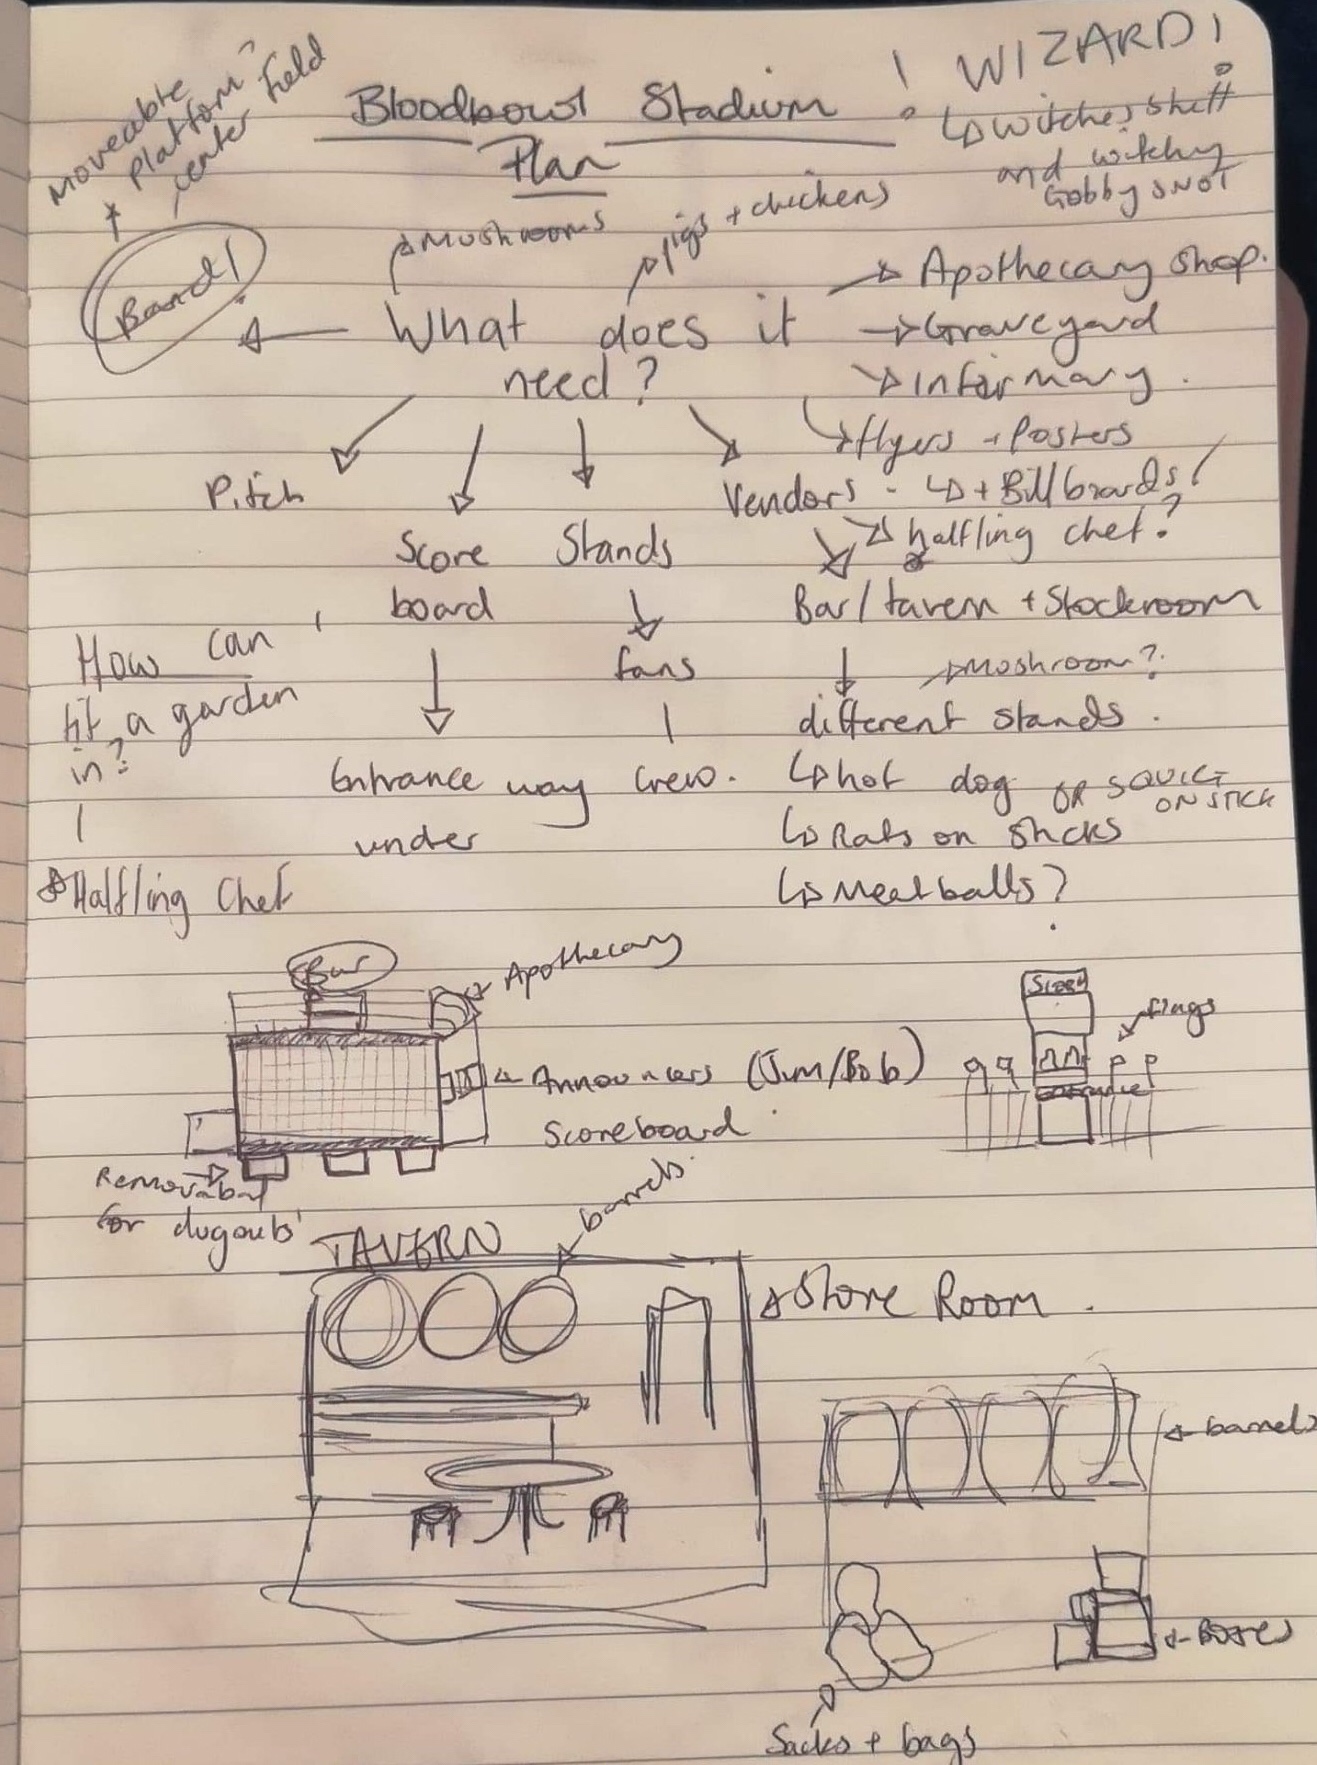 Moveable
Platform?
center field
! WIZARD!
Bloodbowl Stadium
Plan
↳ witches stuff
and witchy
Gobby SNOT
Mushrooms
pigs + chickens
Band!
→ Apothecary Shop.
What does it
need?
→ Graveyard
→ infirmary.
→ flyers + Posters
Pitch
Vendors - ↳ + Billboards!
Score
board
Stands
→ halfling chef?
Bar/tavern + Stockroom
How can
fit a garden
in?
fans
→ Mushroom?
different stands.
Entrance way
under
crew.
↳ hot dog OR SQUIG
ON STICK
↳ Rats on sticks
↳ Meatballs?
Halfling Chef
Bar
Apothecary
Score
flags
← Announcers (Jim/Bob)
Scoreboard
entrance
Removabl
for dugouts
barrels
TAVERN
→ Store Room.
← barrels
← Boxes
Sacks + bags